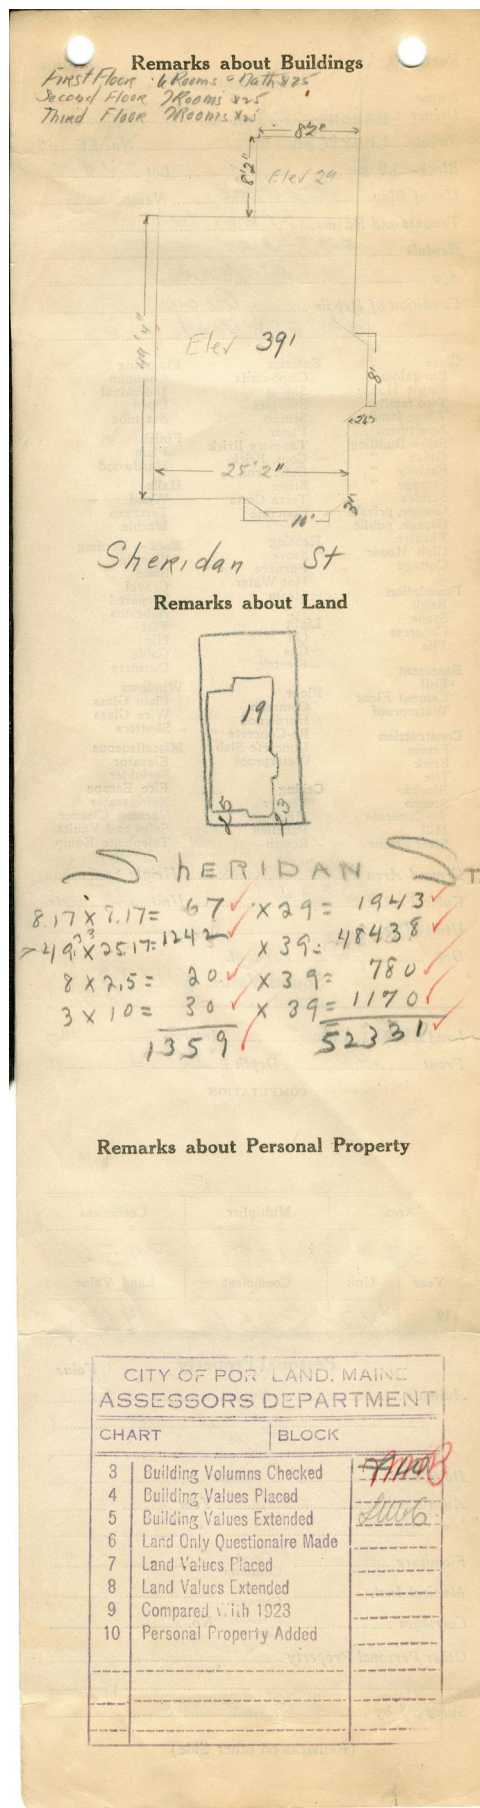 Remarks about Buildings
First Floor 6 Rooms & Bath $25
Second Floor 7 Rooms $25
Third Floor 7 Rooms $25
8'2"
8'2"
Elev 29
49'4"
Elev 39'
8'
25'2"
10'
3'
Sheridan St
Remarks about Land
19
25
23
SHERIDAN ST.
8.17 x 8.17 = 67 x 29 = 1943
49.33 x 25.17 = 1242 x 39 = 48438
8 x 2.5 = 20 x 39 = 780
3 x 10 = 30 x 39 = 1170
1359 52331
Remarks about Personal Property
CITY OF PORTLAND, MAINE
ASSESSORS DEPARTMENT
CHART BLOCK
3 Building Volumns Checked
4 Building Values Placed
5 Building Values Extended
6 Land Only Questionaire Made
7 Land Values Placed
8 Land Values Extended
9 Compared With 1923
10 Personal Property Added